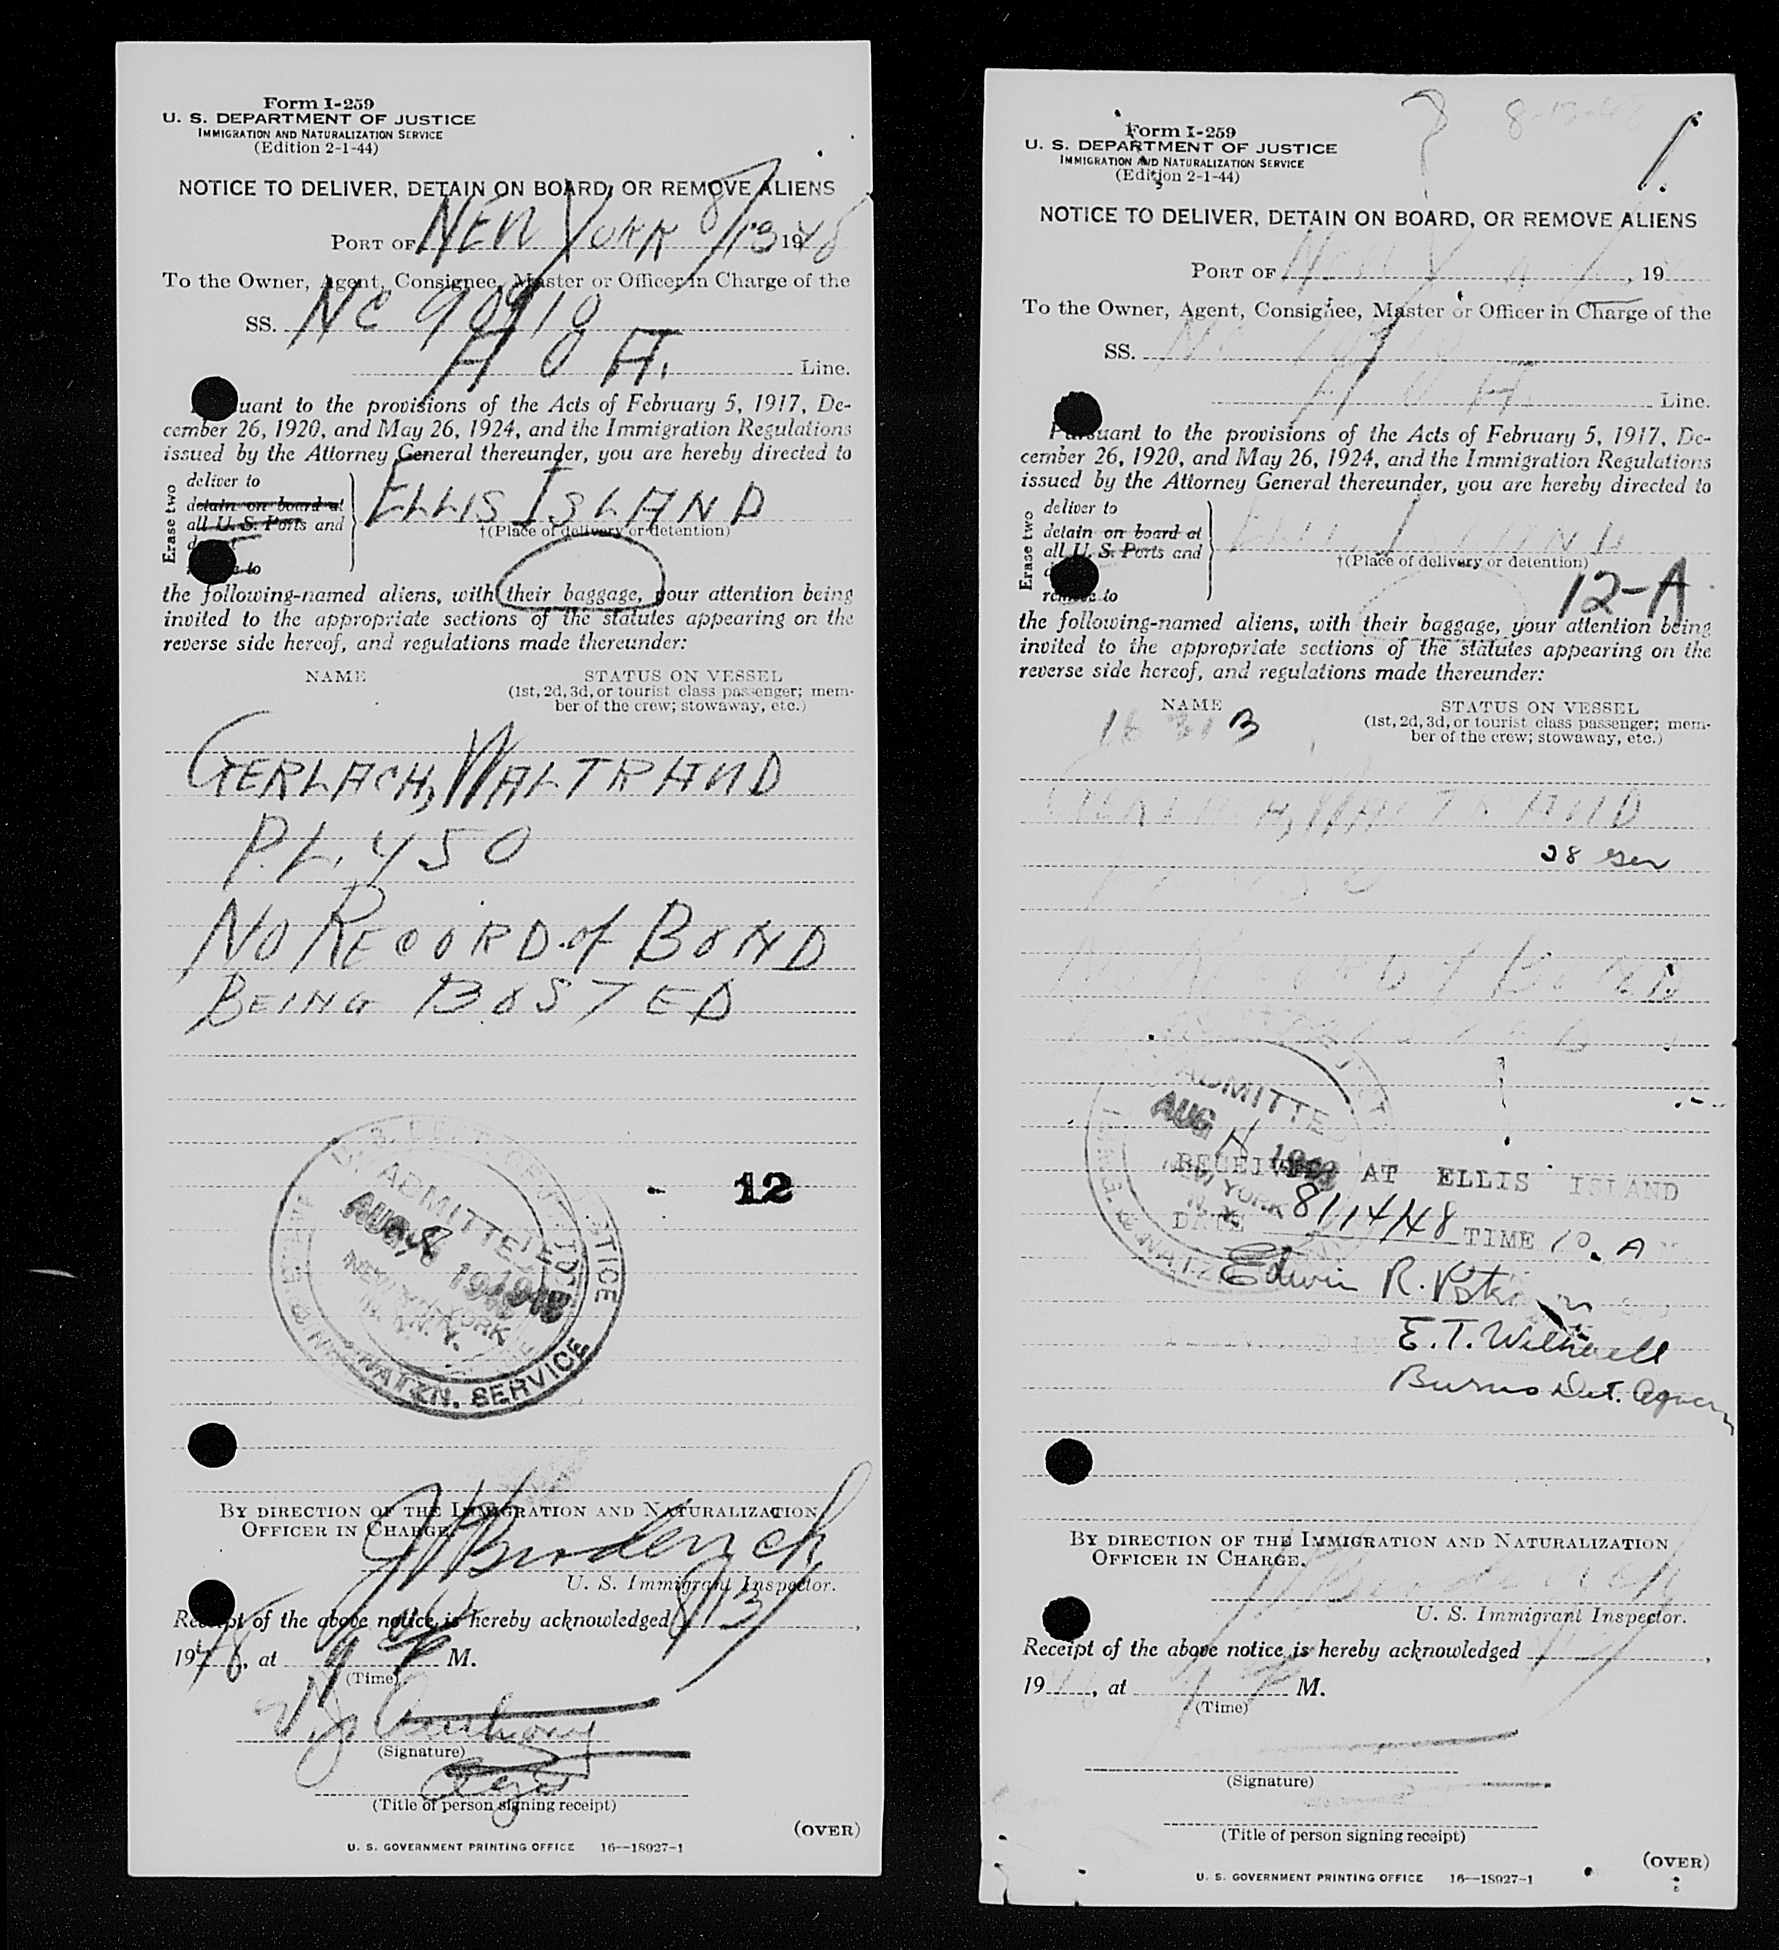 Form I-259
U. S. DEPARTMENT OF JUSTICE
IMMIGRATION AND NATURALIZATION SERVICE
(Edition 2-1-44)
NOTICE TO DELIVER, DETAIN ON BOARD, OR REMOVE ALIENS
PORT OF NEW YORK 8/13 1948
To the Owner, Agent, Consignee, Master or Officer in Charge of the
SS. NC 90910
A O A. Line.
Pursuant to the provisions of the Acts of February 5, 1917, De-
cember 26, 1920, and May 26, 1924, and the Immigration Regulations
issued by the Attorney General thereunder, you are hereby directed to
Erase two
deliver to
detain on board at
all U. S. Ports and
to
ELLIS ISLAND
†(Place of delivery or detention)
the following-named aliens, with their baggage, your attention being
invited to the appropriate sections of the statutes appearing on the
reverse side hereof, and regulations made thereunder:
NAME STATUS ON VESSEL
(1st, 2d, 3d, or tourist class passenger; mem-
ber of the crew; stowaway, etc.)
GERLACH, WALTRAND
P.L. 450
NO RECORD of BOND
BEING POSTED
12
ADMITTED
AUG 1948
NEW YORK
N. Y.
& NATZN. SERVICE
BY DIRECTION OF THE IMMIGRATION AND NATURALIZATION
OFFICER IN CHARGE.
Broderick
U. S. Immigrant Inspector.
Receipt of the above notice is hereby acknowledged 8/13,
1948, at 9 P M.
(Time)
V. J. Anthony
(Signature)
Agt
(Title of person signing receipt)
(OVER)
U. S. GOVERNMENT PRINTING OFFICE 16—18927-1
8-13-48
Form I-259
U. S. DEPARTMENT OF JUSTICE
IMMIGRATION AND NATURALIZATION SERVICE
(Edition 2-1-44)
NOTICE TO DELIVER, DETAIN ON BOARD, OR REMOVE ALIENS
PORT OF New Y , 19
To the Owner, Agent, Consignee, Master or Officer in Charge of the
SS. NC
A O A. Line.
Pursuant to the provisions of the Acts of February 5, 1917, De-
cember 26, 1920, and May 26, 1924, and the Immigration Regulations
issued by the Attorney General thereunder, you are hereby directed to
Erase two
deliver to
detain on board at
all U. S. Ports and
remove to
ELLIS ISLAND
†(Place of delivery or detention)
12-A
the following-named aliens, with their baggage, your attention being
invited to the appropriate sections of the statutes appearing on the
reverse side hereof, and regulations made thereunder:
NAME STATUS ON VESSEL
(1st, 2d, 3d, or tourist class passenger; mem-
ber of the crew; stowaway, etc.)
GERLACH, WALTRAND
28 Ger
BOND
ADMITTED
AUG 14 1948
NEW YORK
N. Y.
RECEIVED AT ELLIS ISLAND
DATE 8/14/48 TIME 10. A M
Edwin R.
E. T.
Burns Det. Agency
BY DIRECTION OF THE IMMIGRATION AND NATURALIZATION
OFFICER IN CHARGE.
Broderick
U. S. Immigrant Inspector.
Receipt of the above notice is hereby acknowledged ,
19 , at M.
(Time)
(Signature)
(Title of person signing receipt)
(OVER)
U. S. GOVERNMENT PRINTING OFFICE 16—18927-1